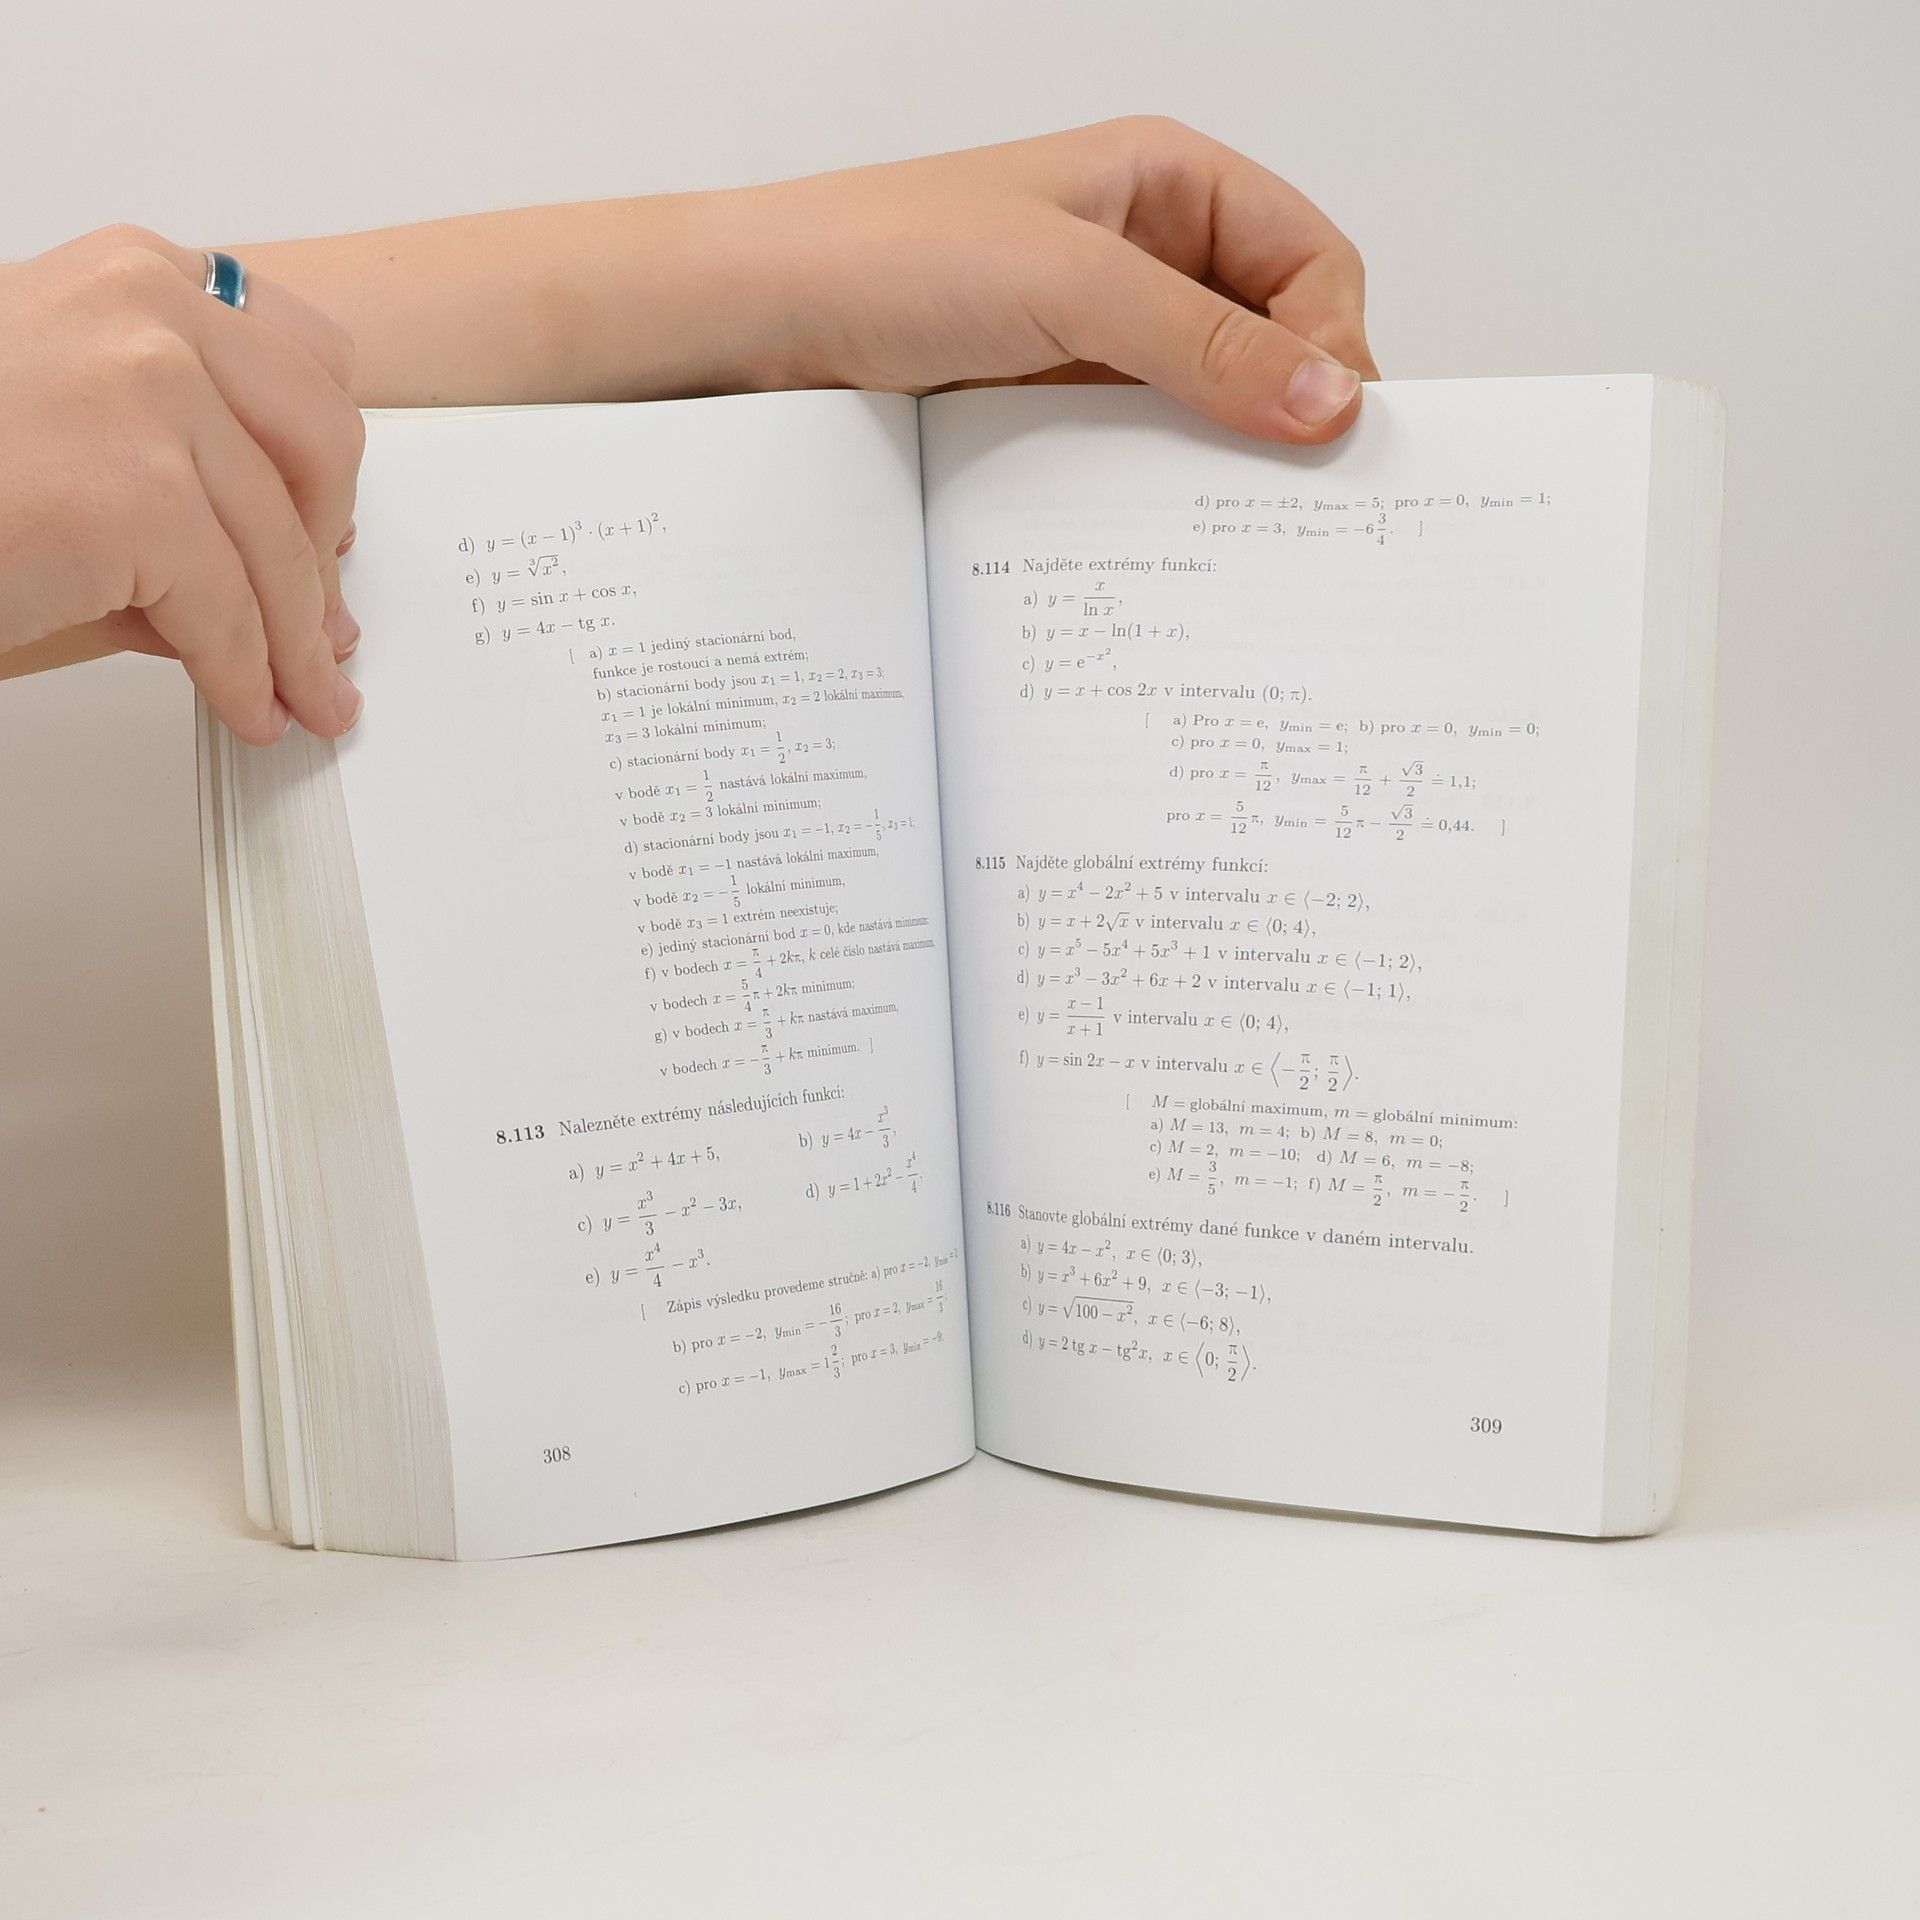 d) y = (x − 1)³ · (x + 1)²,
e) y = ∛x²,
f) y = sin x + cos x,
g) y = 4x − tg x.
[ a) x = 1 jediný stacionární bod,
funkce je rostoucí a nemá extrém;
b) stacionární body jsou x₁ = 1, x₂ = 2, x₃ = 3;
x₁ = 1 je lokální minimum, x₂ = 2 lokální maximum,
x₃ = 3 lokální minimum;
c) stacionární body x₁ = 1/2, x₂ = 3;
v bodě x₁ = 1/2 nastává lokální maximum,
v bodě x₂ = 3 lokální minimum;
d) stacionární body jsou x₁ = −1, x₂ = −1/5, x₃ = 1;
v bodě x₁ = −1 nastává lokální maximum,
v bodě x₂ = −1/5 lokální minimum,
v bodě x₃ = 1 extrém neexistuje;
e) jediný stacionární bod x = 0, kde nastává minimum;
f) v bodech x = π/4 + 2kπ, k celé číslo nastává maximum,
v bodech x = 5/4π + 2kπ minimum;
g) v bodech x = π/3 + kπ nastává maximum,
v bodech x = −π/3 + kπ minimum. ]
8.113 Nalezněte extrémy následujících funkcí:
a) y = x² + 4x + 5, b) y = 4x − x³/3,
c) y = x³/3 − x² − 3x, d) y = 1 + 2x² − x⁴/4,
e) y = x⁴/4 − x³.
[ Zápis výsledku provedeme stručně: a) pro x = −2, ymin = 1;
b) pro x = −2, ymin = −16/3; pro x = 2, ymax = 16/3;
c) pro x = −1, ymax = 1 2/3; pro x = 3, ymin = −9;
308
d) pro x = ±2, ymax = 5; pro x = 0, ymin = 1;
e) pro x = 3, ymin = −6 3/4. ]
8.114 Najděte extrémy funkcí:
a) y = x/ln x,
b) y = x − ln(1 + x),
c) y = e^(−x²),
d) y = x + cos 2x v intervalu (0; π).
[ a) Pro x = e, ymin = e; b) pro x = 0, ymin = 0;
c) pro x = 0, ymax = 1;
d) pro x = π/12, ymax = π/12 + √3/2 ≐ 1,1;
pro x = 5/12π, ymin = 5/12π − √3/2 ≐ 0,44. ]
8.115 Najděte globální extrémy funkcí:
a) y = x⁴ − 2x² + 5 v intervalu x ∈ ⟨−2; 2⟩,
b) y = x + 2√x v intervalu x ∈ ⟨0; 4⟩,
c) y = x⁵ − 5x⁴ + 5x³ + 1 v intervalu x ∈ ⟨−1; 2⟩,
d) y = x³ − 3x² + 6x + 2 v intervalu x ∈ ⟨−1; 1⟩,
e) y = (x − 1)/(x + 1) v intervalu x ∈ ⟨0; 4⟩,
f) y = sin 2x − x v intervalu x ∈ ⟨−π/2; π/2⟩.
[ M = globální maximum, m = globální minimum:
a) M = 13, m = 4; b) M = 8, m = 0;
c) M = 2, m = −10; d) M = 6, m = −8;
e) M = 3/5, m = −1; f) M = π/2, m = −π/2. ]
8.116 Stanovte globální extrémy dané funkce v daném intervalu.
a) y = 4x − x², x ∈ ⟨0; 3⟩,
b) y = x³ + 6x² + 9, x ∈ ⟨−3; −1⟩,
c) y = √(100 − x²), x ∈ ⟨−6; 8⟩,
d) y = 2 tg x − tg²x, x ∈ ⟨0; π/2⟩.
309